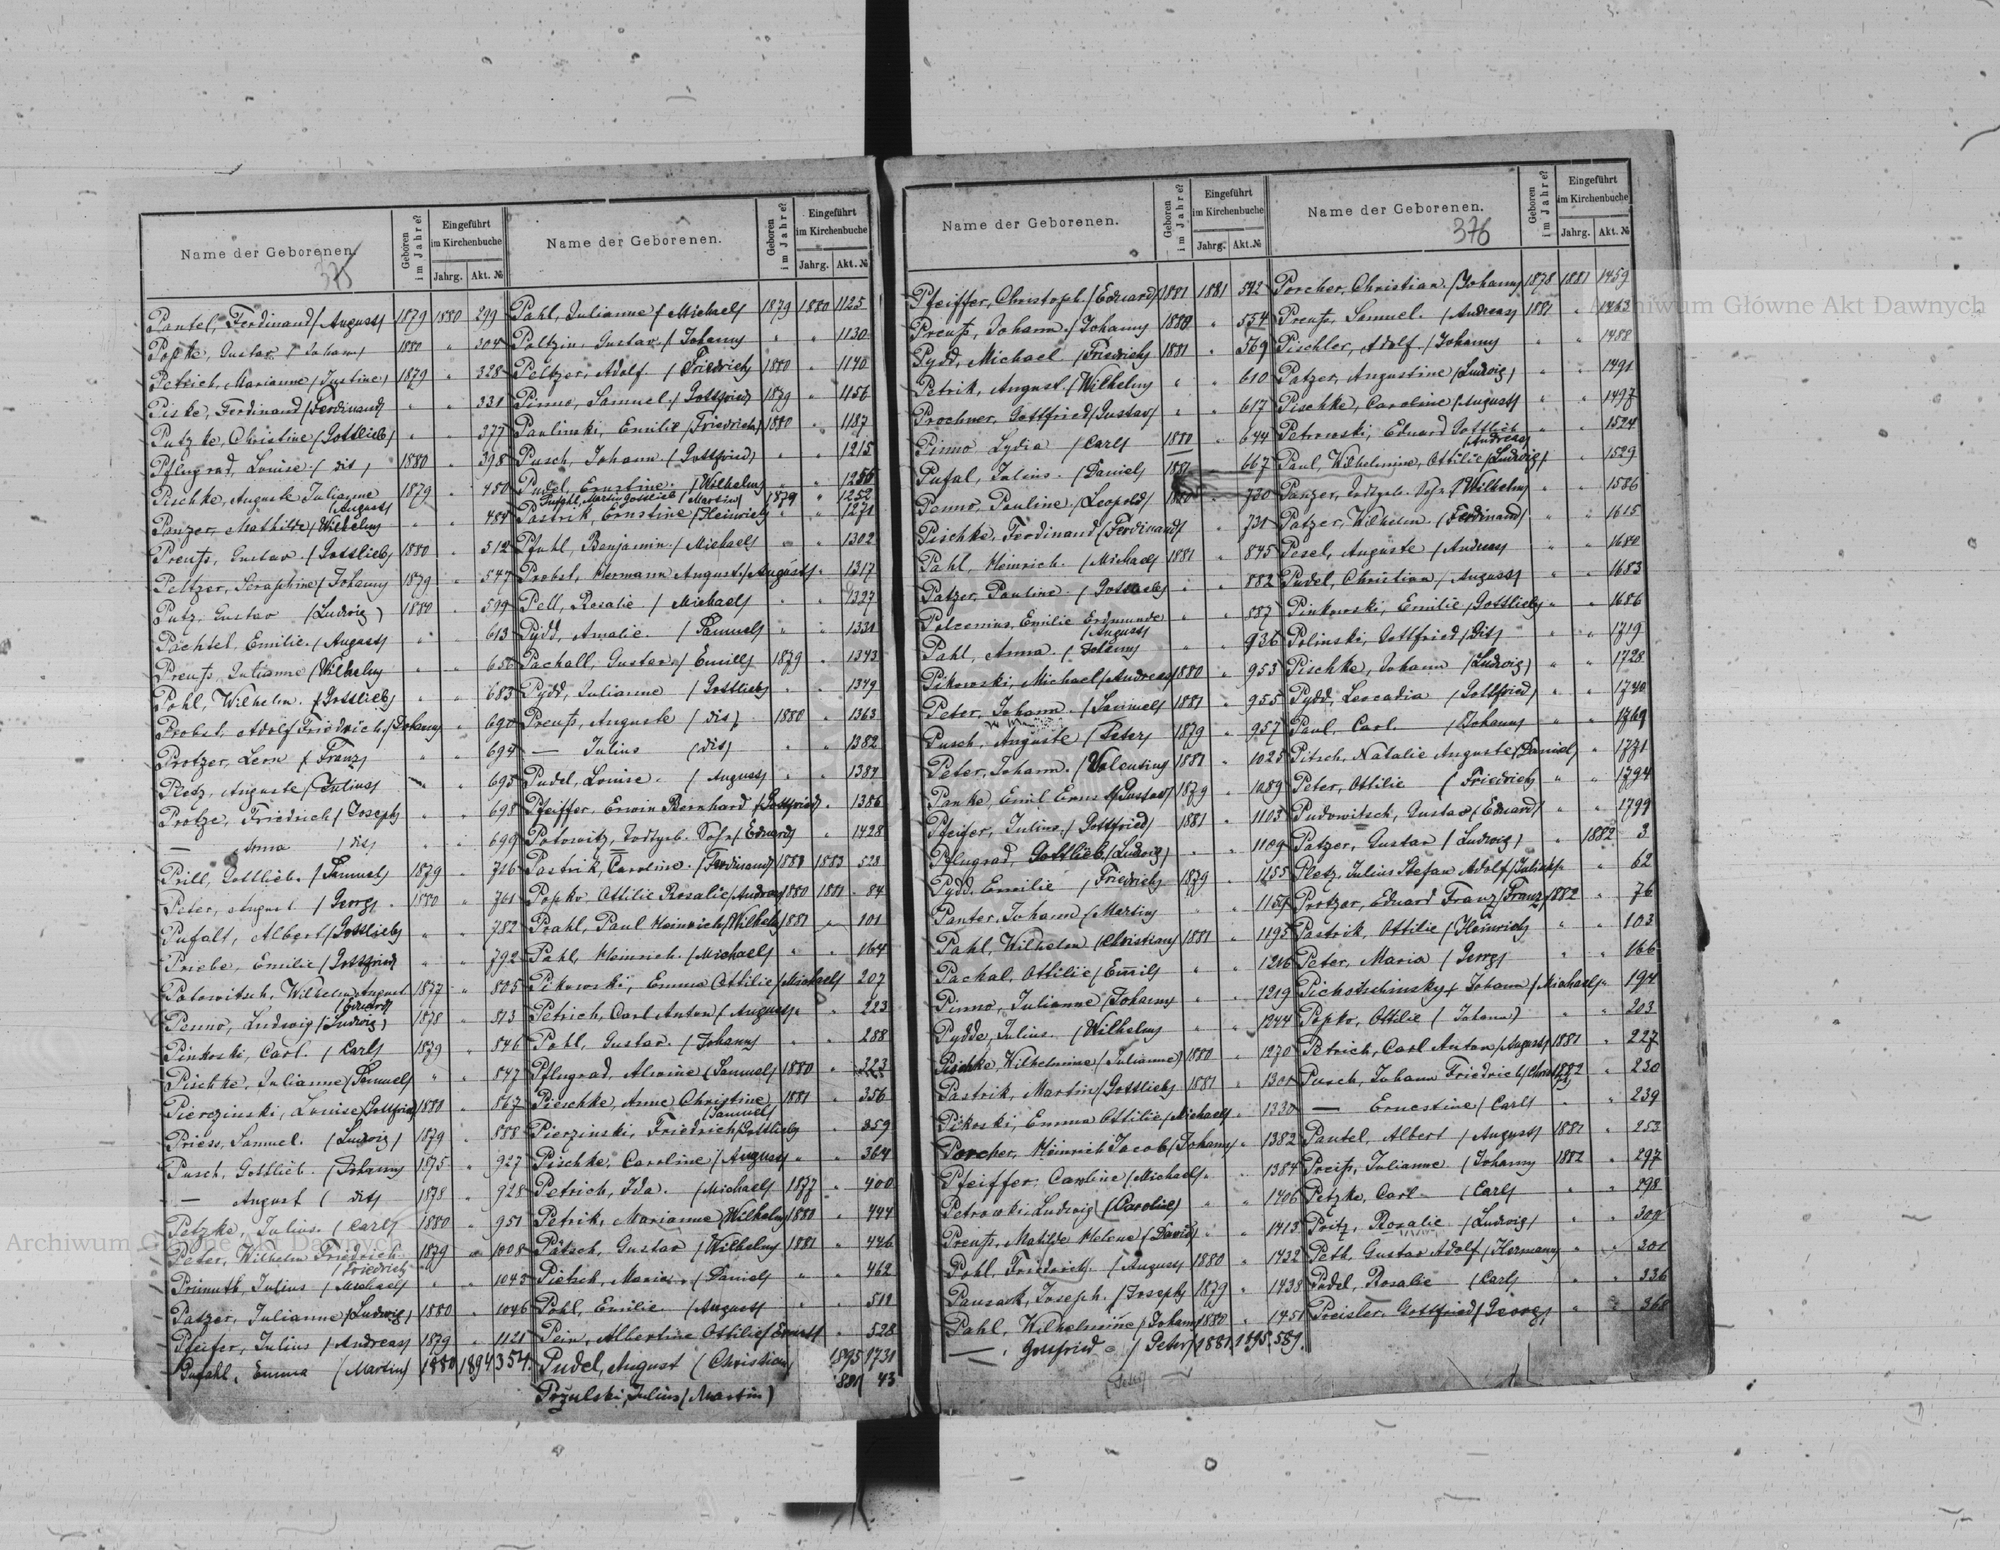 Name der Geborenen.
375
Geboren im Jahre?
Eingeführt im Kirchenbuche
Jahrg.
Akt. №
Pantel, Ferdinand (August) 1879 1880 299
Popke, Gustav (Johann) 1880 " 304
Petrich, Marianne (Justine) 1879 " 328
Piske, Ferdinand (Ferdinand) " " 331
Putzke, Christine (Gottlieb) " " 377
Pflugrad, Louise (dis) 1880 " 398
Pischke, Auguste Julianne (August) 1879 " 450
Panzer, Mathilde (Wilhelm) " " 484
Preuß, Gustav (Gottlieb) 1880 " 512
Peltzer, Seraphine (Johann) 1879 " 547
Putz, Gustav (Ludwig) 1880 " 599
Pächtel, Emilie (August) " " 613
Preuß, Julianne (Wilhelm) " "
Pohl, Wilhelm (Gottlieb) " " 683
Probst, Adolf Friedrich (Johann) " 690
Protzer, Leon (Franz) " " 694
Pletz, Auguste (Julius) " " 695
Protze, Friedrich (Joseph) " " 698
— Anna (dis) " " 699
Prill, Gottlieb (Samuel) 1879 " 726
Peter, August (Georg) 1880 " 761
Pufalt, Albert (Gottlieb) " " 782
Priebe, Emilie (Gottfried) " " 792
Potowitsch, Wilhelm August (Eduard) 1877 " 805
Penno, Ludwig (Ludwig) 1878 " 813
Pinkoski, Carl (Carl) 1879 " 846
Pischke, Julianne (Samuel) " " 847
Pierczinski, Louise (Gottfried) 1880 " 867
Priess, Samuel (Ludwig) 1879 " 888
Pusch, Gottlieb (Johann) 1875 " 927
— August (dis) 1878 " 928
Petzke, Julius (Carl) 1880 " 951
Peter, Wilhelm Friedrich (Friedrich) 1879 " 1008
Primuth, Julius (Michael) " " 1043
Patzer, Julianne (Ludwig) 1880 " 1046
Pfeifer, Julius (Andreas) 1879 " 1121
Pufahl, Emma (Martin) 1880 1894 354.
Name der Geborenen.
Geboren im Jahre?
Eingeführt im Kirchenbuche
Jahrg.
Akt. №
Pahl, Julianne (Michael) 1879 1880 1125
Poltzin, Gustav (Johann) " " 1130
Peltzer, Adolf (Friedrich) 1880 " 1140
Pinno, Samuel (Gottfried) 1879 " 1156
Paulinski, Emilie (Friedrich) 1880 " 1187
Pusch, Johann (Gottfried) " " 1215
Pudel, Ernstine (Wilhelm) " "
Pufahl, Martin Gottlieb (Martin) 1879 " 1252
Pastrik, Ernstine (Heinrich) " " 1271
Pfahl, Benjamin (Michael) " " 1302
Probst, Hermann August (August) " 1317
Pell, Rosalie (Michael) " " 1327
Pydd, Amalie (Samuel) " " 1331
Pachall, Gustav (Emill) 1879 " 1343
Pydd, Julianne (Gottlieb) " " 1349
Preuß, Auguste (dis) 1880 " 1363
— Julius (dis) " " 1382
Pudel, Louise (August) " " 1384
Pfeiffer, Erwin Bernhard (Gottfried) " 1386
Potowitz, todtgeb. Sohn (Eduard) " 1428
Pastrik, Caroline (Ferdinand) 1880 1883 528
Popko, Ottilie Rosalie (Andreas) 1880 1881 84
Prahl, Paul Heinrich (Wilhelm) 1881 " 101
Pahl, Heinrich (Michael) " " 164
Pikowski, Emma Ottilie (Michael) 207
Petrich, Carl Anton (August) " " 223
Pohl, Gustav (Johann) " " 288
Pflugrad, Alwine (Samuel) 1880 " 323
Pieschke, Anne Christine (Samuel) 1881 " 356
Pierzinski, Friedrich (Gottlieb) " 359
Pischke, Caroline (August) " " 364
Petrich, Ida (Michael) 1877 " 400
Petrik, Marianne (Wilhelm) 1880 " 444
Pätsch, Gustav (Wilhelm) 1881 " 446
Pietsch, Marie (Daniel) " " 462
Pohl, Emilie (August) " " 511
Pein, Albertine Ottilie (Ernst) " 528
Pudel, August (Christian) 1895 1731
Pozulski, Julius (Martin) 881 43
Name der Geborenen.
Geboren im Jahre?
Eingeführt im Kirchenbuche
Jahrg.
Akt. №
Pfeiffer, Christoph (Eduard) 1881 1881 542
Preuß, Johann (Johann) 1880 " 554
Pydd, Michael (Friedrich) 1881 " 569
Petrik, August (Wilhelm) " " 610
Prochner, Gottfried (Gustav) " " 617
Pinno Lydia (Carl) 1880 " 644
Pufal, Julius (Daniel) 1881 " 667
Penno, Pauline (Leopold) 1880 " 730
Pischke, Ferdinand (Ferdinand) " 731
Pahl, Heinrich (Michael) 1881 " 875
Patzer, Pauline (Gottlieb) " " 882
Polcenius, Emilie Erdmunde (August) " " 887
Pahl, Anna (Johann) " " 936
Pikowski, Michael (Andreas) 1880 " 953
Peter, Johann (Samuel) 1881 " 955
Pusch, Auguste (Peter) 1879 " 957
Peter, Johann (Valentin) 1881 " 1025
Panke, Emil Ernst (Gustav) 1879 " 1089
Pfeifer, Julius (Gottfried) 1881 " 1103
Pflugrad, Gottlieb (Ludwig) " " 1109
Pydd, Emilie (Friedrich) 1879 " 1155
Panter, Johann (Martin) " " 1157
Pahl, Wilhelm (Christian) 1881 " 1195
Pachal, Ottilie (Emil) " " 1216
Pinno, Julianne (Johann) " " 1219
Pydde, Julius (Wilhelm) " " 1244
Pischke, Wilhelmine (Julianne) 1880 " 1270
Pastrik, Martin (Gottlieb) 1881 " 1301
Pikoski, Emma Ottilie (Michael) " " 1330
Porcher, Heinrich Jacob (Johann) " 1382
Pfeiffer, Caroline (Michael) " " 1384
Petrowski Ludwig (Caroline) " " 1406
Preuß, Matilde Helene (David) " " 1413
Pohl, Friedrich (August) 1880 " 1432
Pansack, Joseph (Joseph) 1879 " 1438
Pahl, Wilhelmine (Johann) 1880 " 1451
— Gottfried (Peter) 1881 1895. 581.
Name der Geborenen.
376
Geboren im Jahre?
Eingeführt im Kirchenbuche
Jahrg.
Akt. №
Porcher, Christian (Johann) 1878 1881 1459
Preuß, Samuel (Andreas) 1881 " 1463
Pischler, Adolf (Johann) " " 1488
Patzer, Augustine (Ludwig) " " 1491
Pischke, Caroline (August) " " 1497
Petrowski, Eduard Gottlieb (Andreas) " " 1524
Paul, Wilhelmine, Ottilie (Ludwig) " 1529
Panzer, todtgeb. Sohn (Wilhelm) " " 1586
Patzer, Wilhelm (Ferdinand) " " 1615
Pesel, Auguste (Andreas) " " 1680
Pudel, Christina (August) " " 1683
Pinkowski, Emilie (Gottlieb) " " 1686
Polinski, Gottfried (dis) " " 1719
Pischke, Johann (Ludwig) " " 1728
Pydd, Leocadia (Gottfried) " " 1740
Paul, Carl (Johann) " " 1769
Pitsch, Natalie Auguste (Daniel) " 1771
Peter, Ottilie (Friedrich) " " 1794
Pudowitsch, Gustav (Eduard) " " 1799
Patzer, Gustav (Ludwig) " 1882 3
Pletz, Julius Stefan Adolf (Julius) " 62
Protzer, Eduard Franz (Franz) 1882 " 76
Pastrik, Ottilie (Heinrich) " " 103
Peter, Maria (Georg) " " 166
Pichotschinsky, Johann (Michael) " 194
Popko, Ottilie (Johann) " " 203
Petrich, Carl Anton (August) 1881 " 227
Pusch, Johann Friedrich 1882 " 230
— Ernestine (Carl) " " 239
Pantel, Albert (August) 1881 " 253
Preiß, Julianne (Johann) 1882 " 297
Petzke, Carl (Carl) " " 298
Poitz, Rosalie (Ludwig) " " 300
Peth, Gustav Adolf (Hermann) " " 301
Pudel, Rosalie (Carl) " " 336
Preisler, Gottfried (Georg) " " 360
Archiwum Główne Akt Dawnych
Archiwum Główne Akt Dawnych